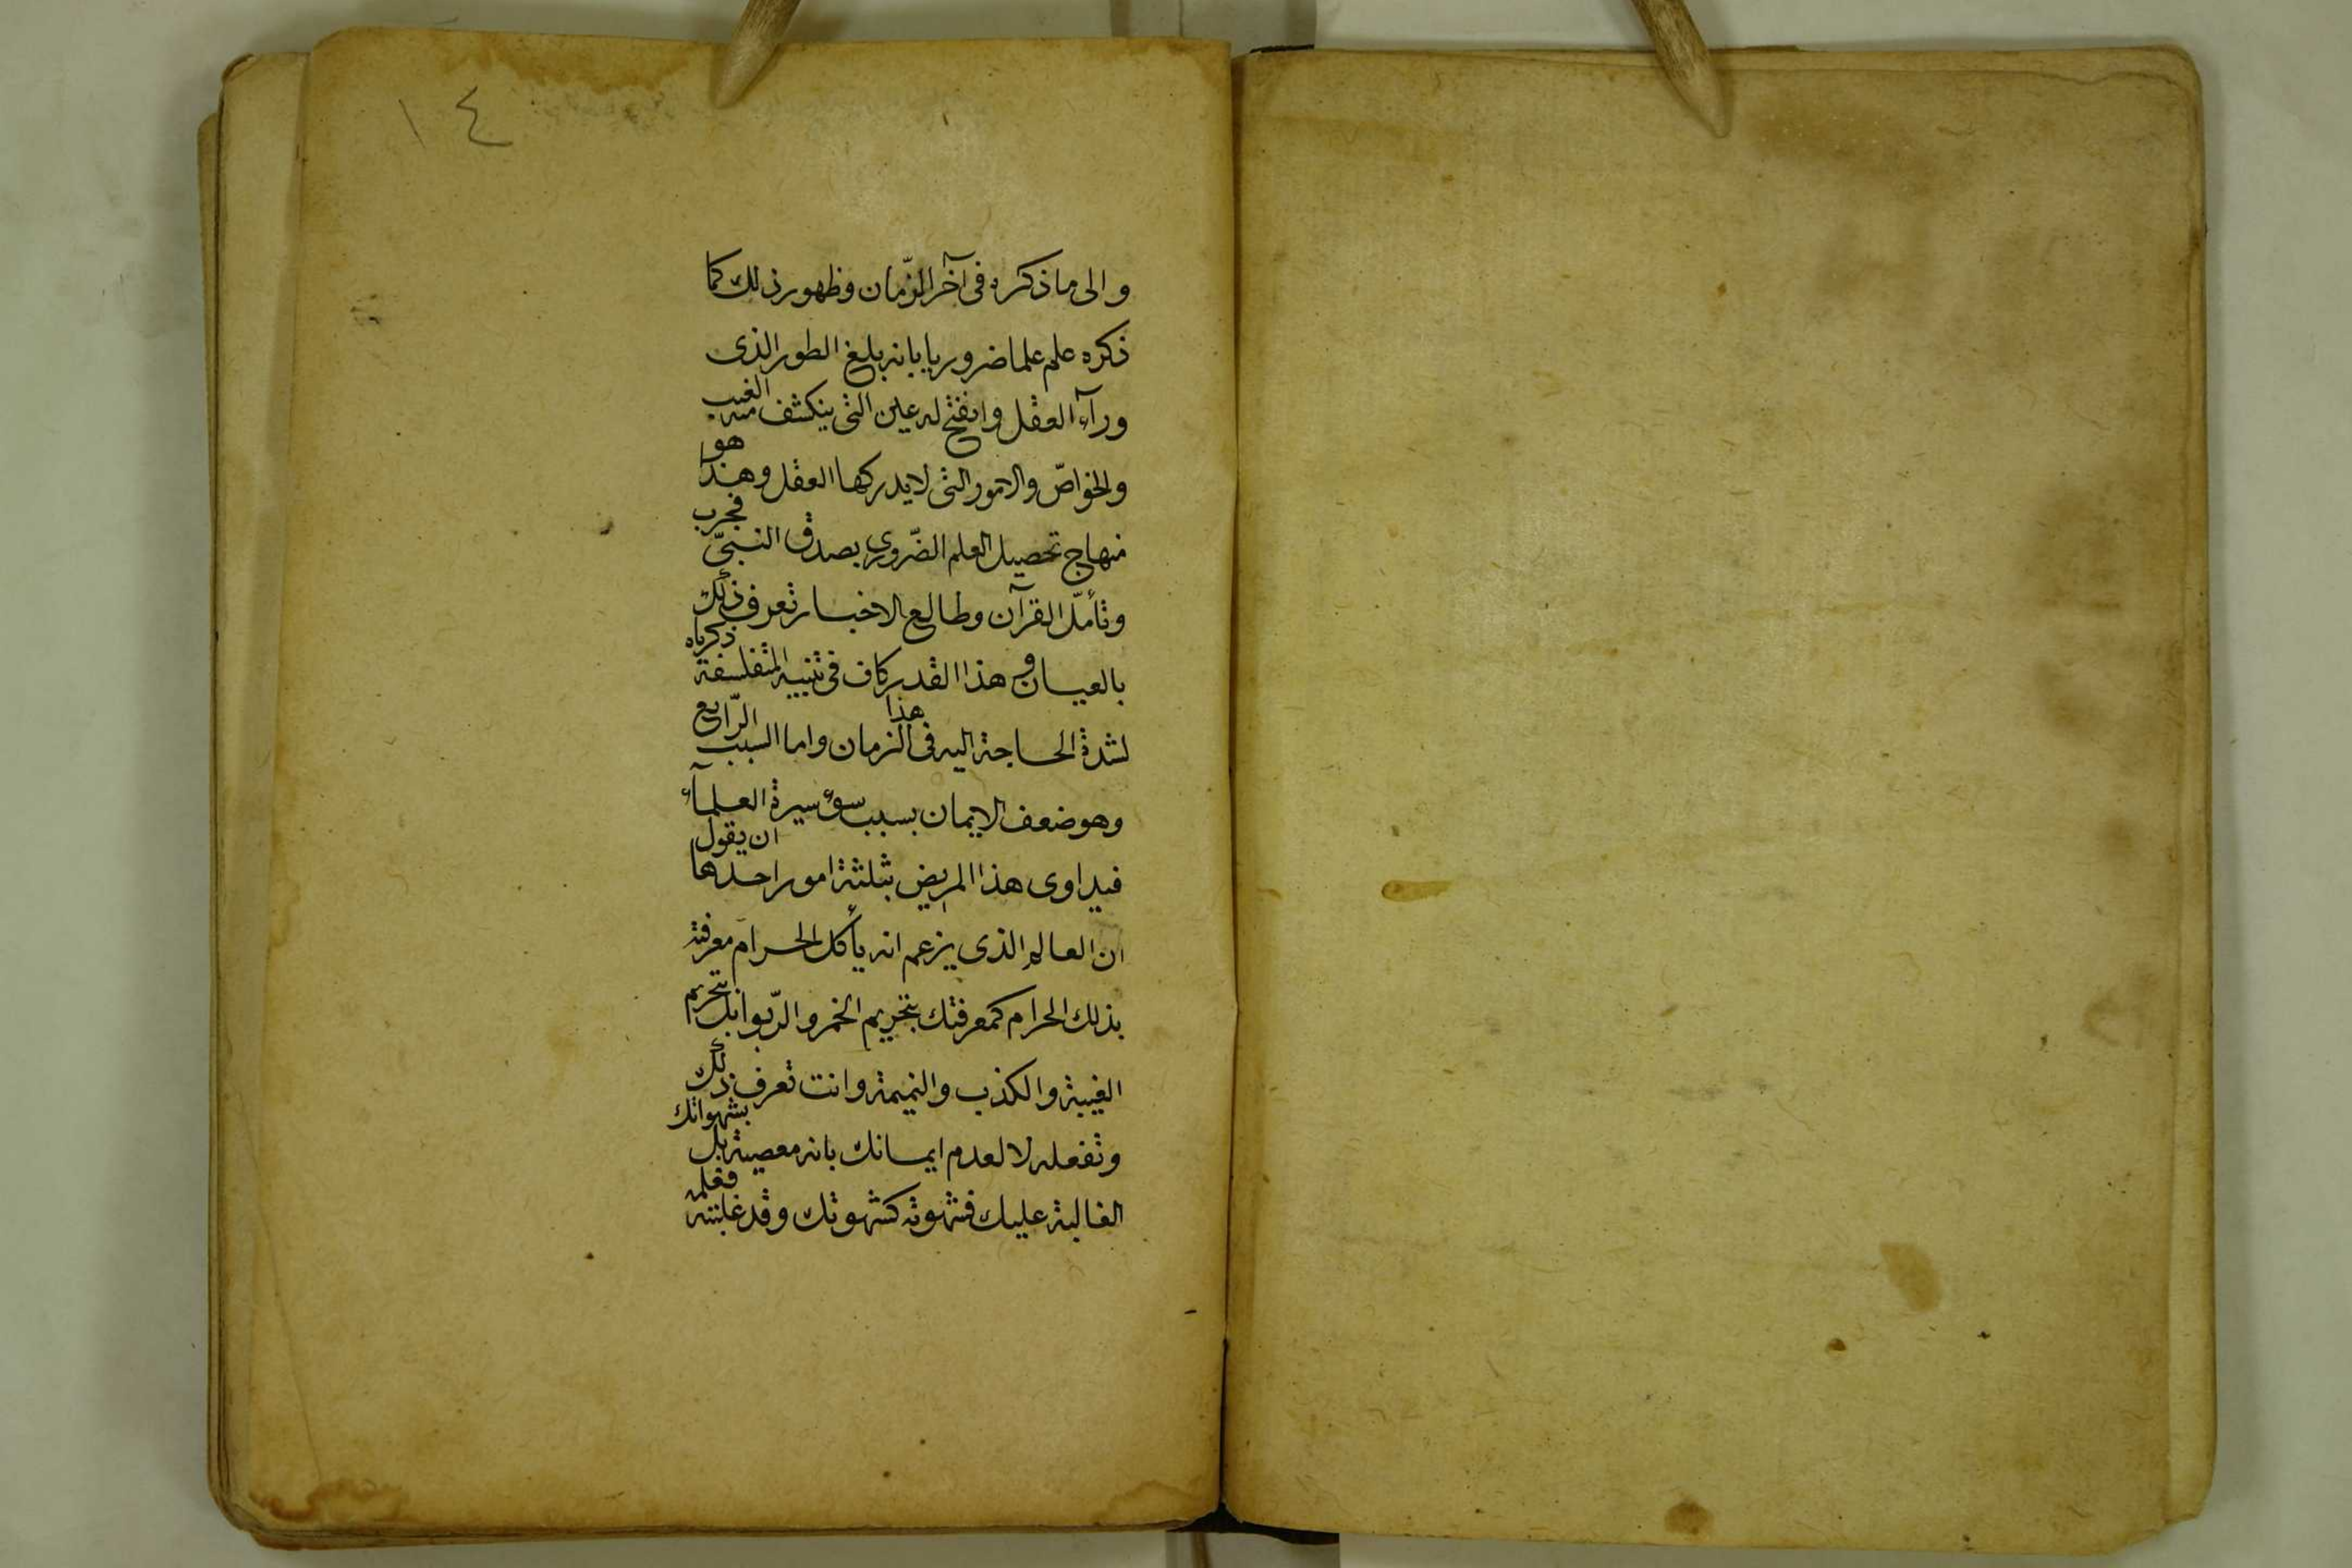 ١٤
والى ما ذكره فى آخر الزّمان وظهور ذلك كما
ذكره علم علما ضروريا بانه بلغ الطور الذى
ورآء العقل وانفتح له عين التى ينكشف منه الغيب
والخواصّ والامور التى لا يدركها العقل وهذا هو
منهاج تحصيل العلم الضّرورى بصدق النبىّ فجرب
وتأمّل القرآن وطالع الاخبار تعرف ذلك
بالعيان و هذا القدر كاف فى تنبيه المتفلسفة ذكرناه
لشدة الحاجة اليه فى هذا الزمان واما السبب الرّابع
وهو ضعف الايمان بسبب سوء سيرة العلمآء
فيداوى هذا المريض بثلثة امور احدها ان يقول
ان العالم الذى يزعم انه يأكل الحرام معرفته
بذلك الحرام كمعرفتك بتحريم الخمر والرّبوا بل بتحريم
الغيبة والكذب والنميمة وانت تعرف ذلك
وتفعله لا لعدم ايمانك بانه معصية بل بشهواتك
الغالبة عليك فشهوته كشهوتك وقد غلبته فعلمه